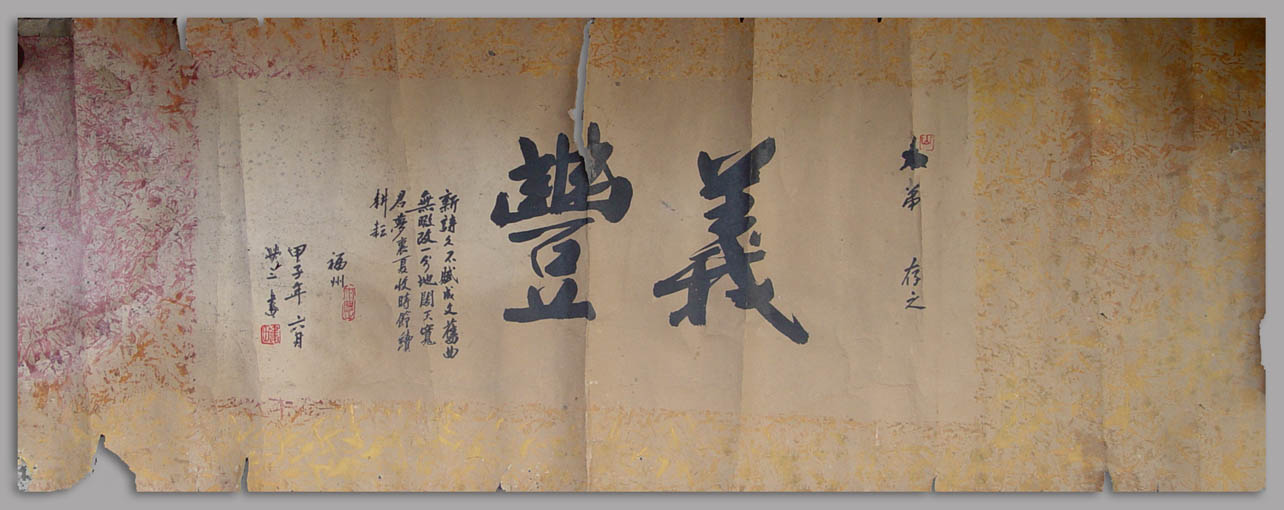 弟 存之
義豐
新詩久不賦成文舊曲
無暇改一分地闊天寬
君夢裏夏收時節續
耕耘
福州
甲子年六月
書